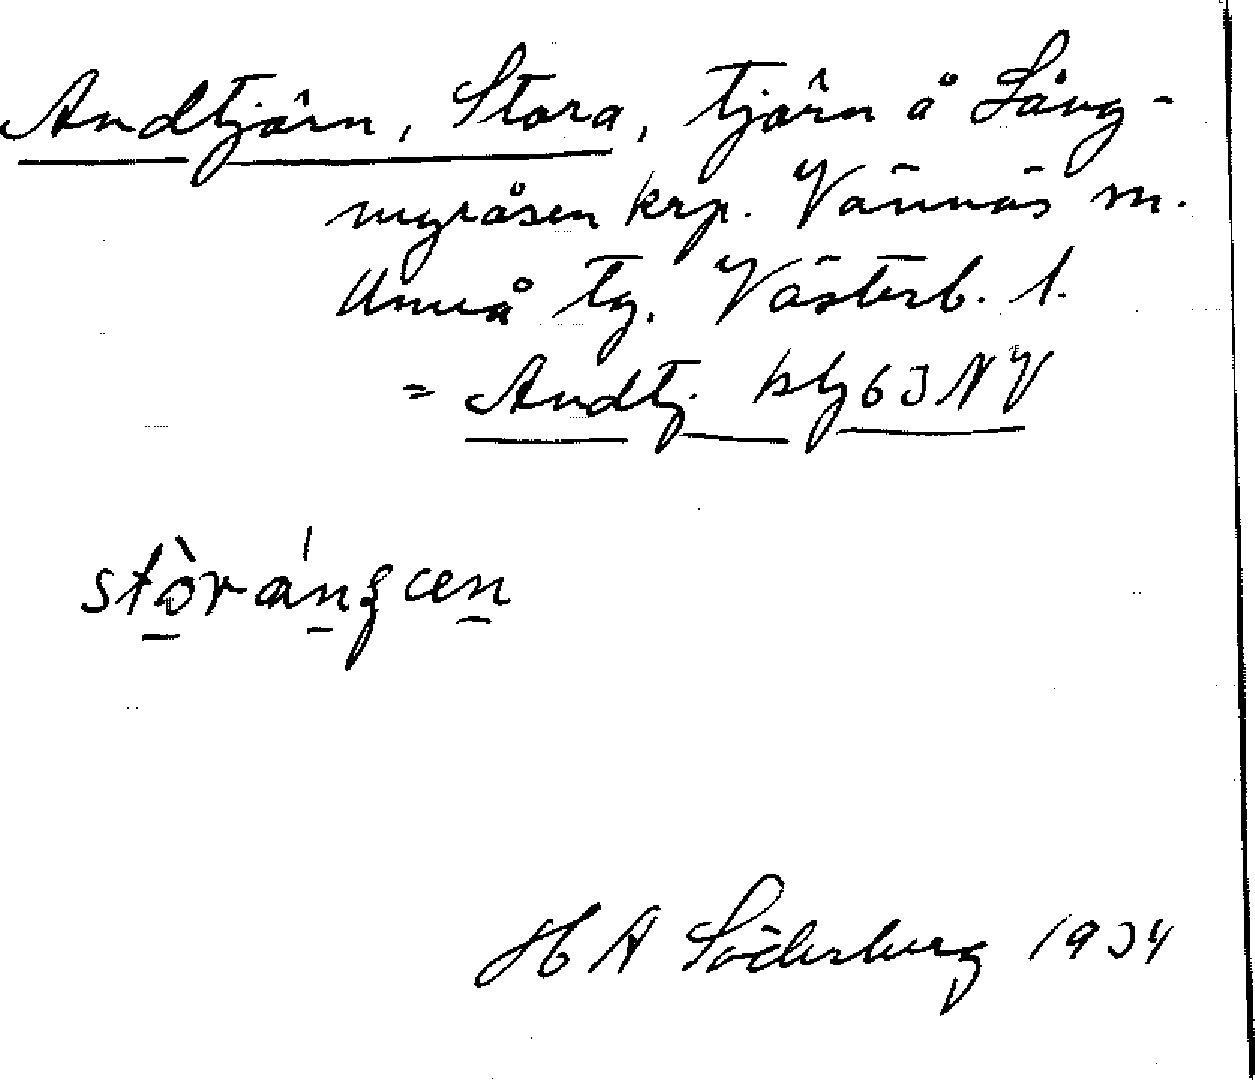 Andtjärn, Stora, tjärn å Lång-
myråsen krp. Vännäs sn.
Umeå tg. Västerb. l.
= Andtj. bl 63 NV
H A Söderberg 1934